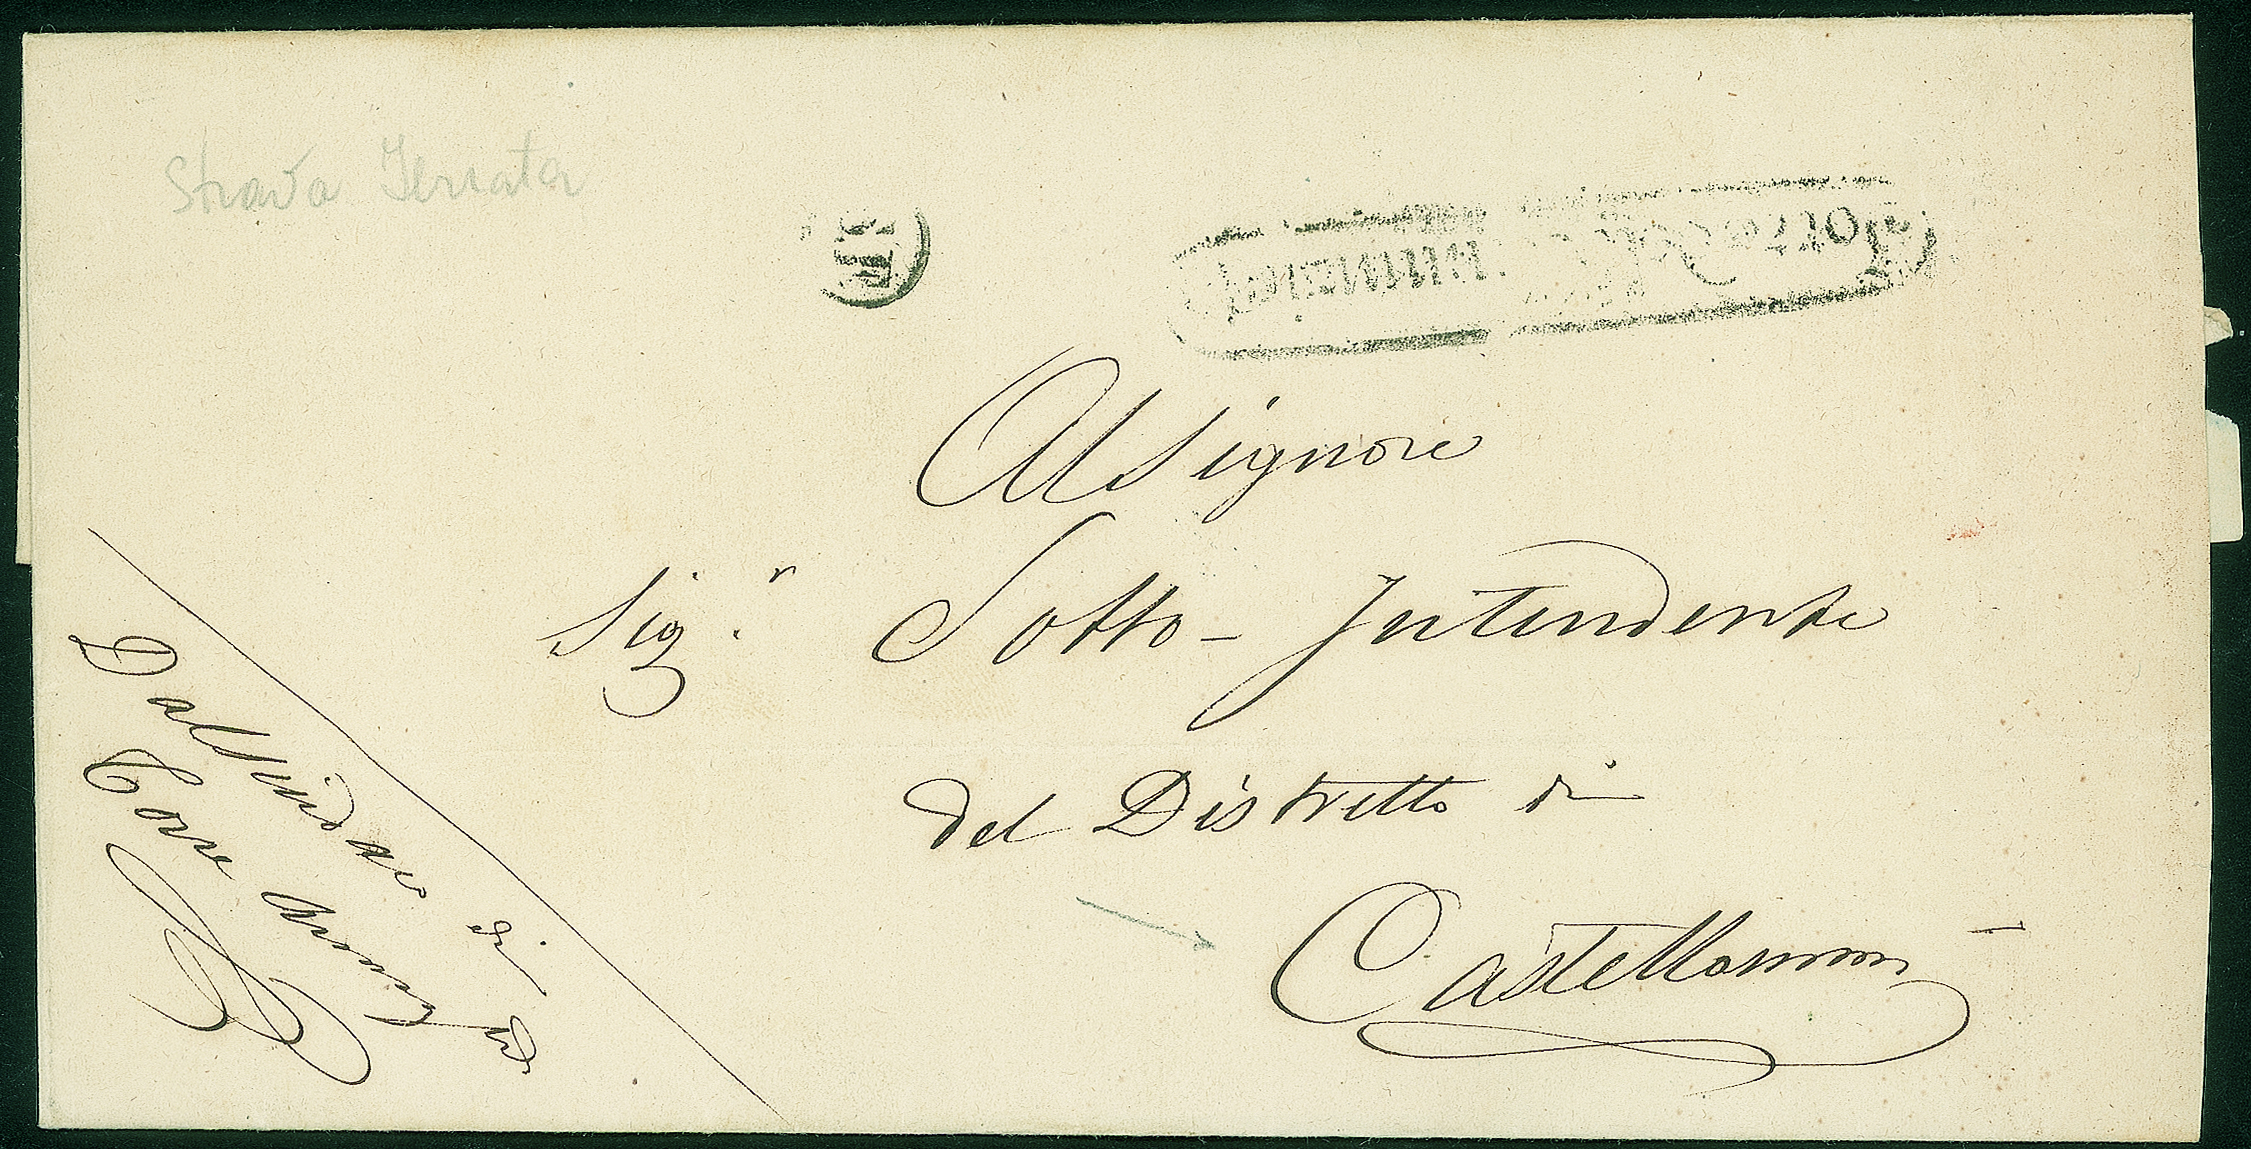 Strada Ferrata
Al Signore
Sig.r Sotto-Intendente
del Distretto di
Castellammare
Dal Sindaco di
Torre